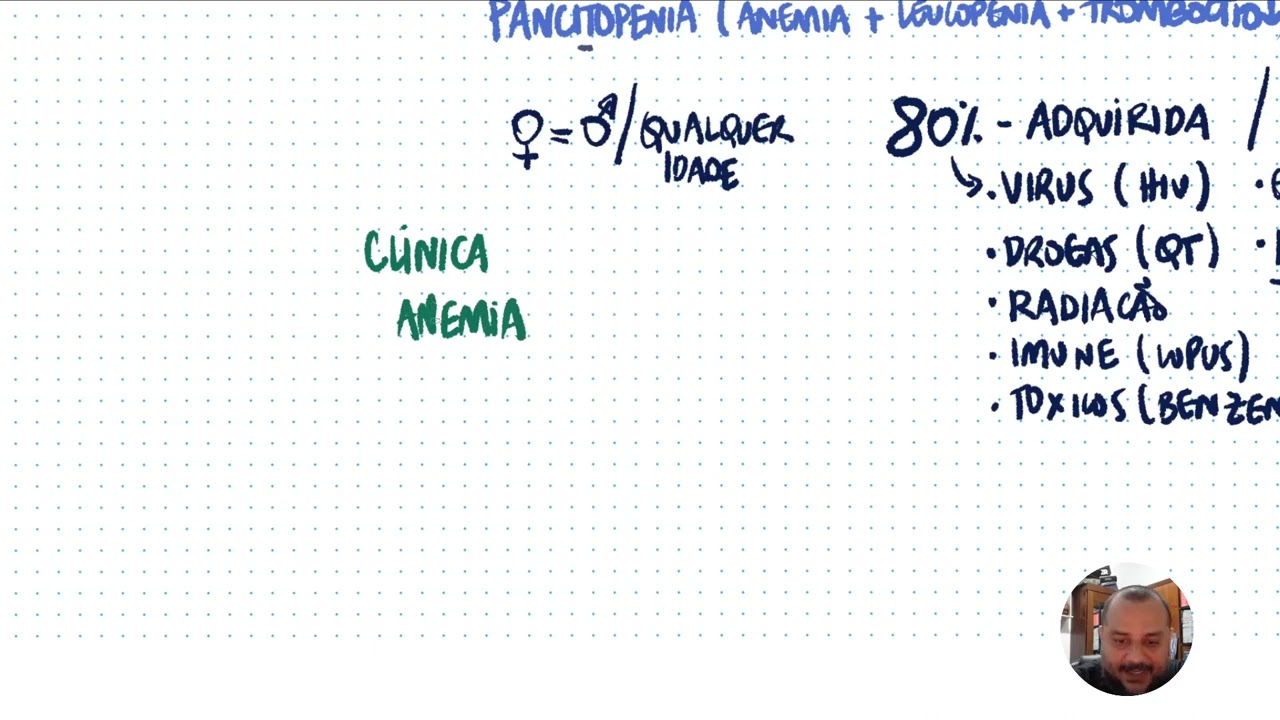 PANCITOPENIA (ANEMIA + LEUCOPENIA + TROMBOCITO
♀ = ♂ / QUALQUER
IDADE
80% - ADQUIRIDA /
• VIRUS (HIV)
• DROGAS (QT)
• RADIAÇÃO
• IMUNE (LUPUS)
• TOXICOS (BENZEN
CLÍNICA
ANEMIA